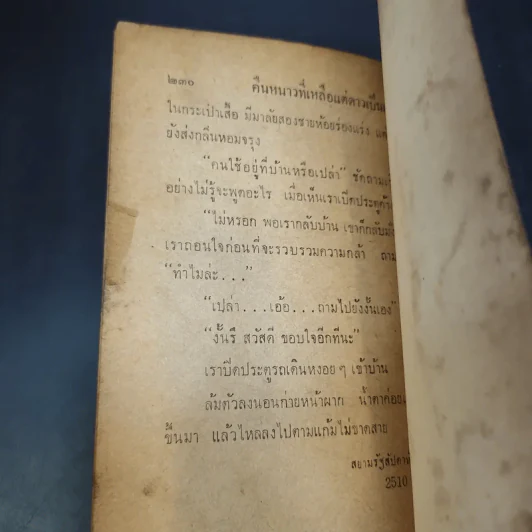 ๒๓๐ คืนหนาวที่เหลือแต่ดาวเป็น
ในกระเป๋าเสื้อ มีมาลัยสองชายห้อยร่องแร่ง แต่
ยังส่งกลิ่นหอมจรุง
“คนใช้อยู่ที่บ้านหรือเปล่า” รัตถาม
อย่างไม่รู้จะพูดอะไร เมื่อเห็นเราเปิดประตู
“ไม่หรอก พอเรากลับบ้าน เขาก็กลับ
เราถอนใจก่อนที่จะรวบรวมความกล้า ถาม
“ทำไมล่ะ...”
“เปล่า...เอ้อ...ถามไปยังงั้นเอง”
“งั้นรึ สวัสดี ขอบใจอีกทีนะ”
เราปิดประตูรถเดินหงอย ๆ เข้าบ้าน
ล้มตัวลงนอนก่ายหน้าผาก น้ำตาค่อย
ขึ้นมา แล้วไหลลงไปตามแก้มไม่ขาดสาย
สยามรัฐสัปดาห์
2510